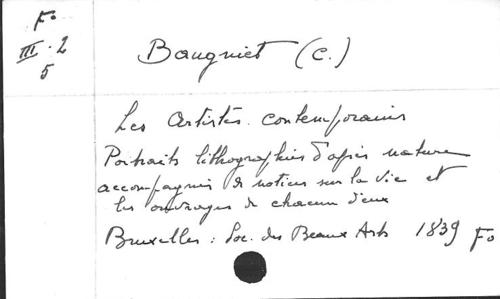 Fo
III. 2
5
Baugniet (C.)
Les Artistes contemporains
Portraits lithographiés d'après nature
accompagnés de notices sur la vie et
les ouvrages de chacun d'eux
Bruxelles : Soc. des Beaux Arts 1839 Fo